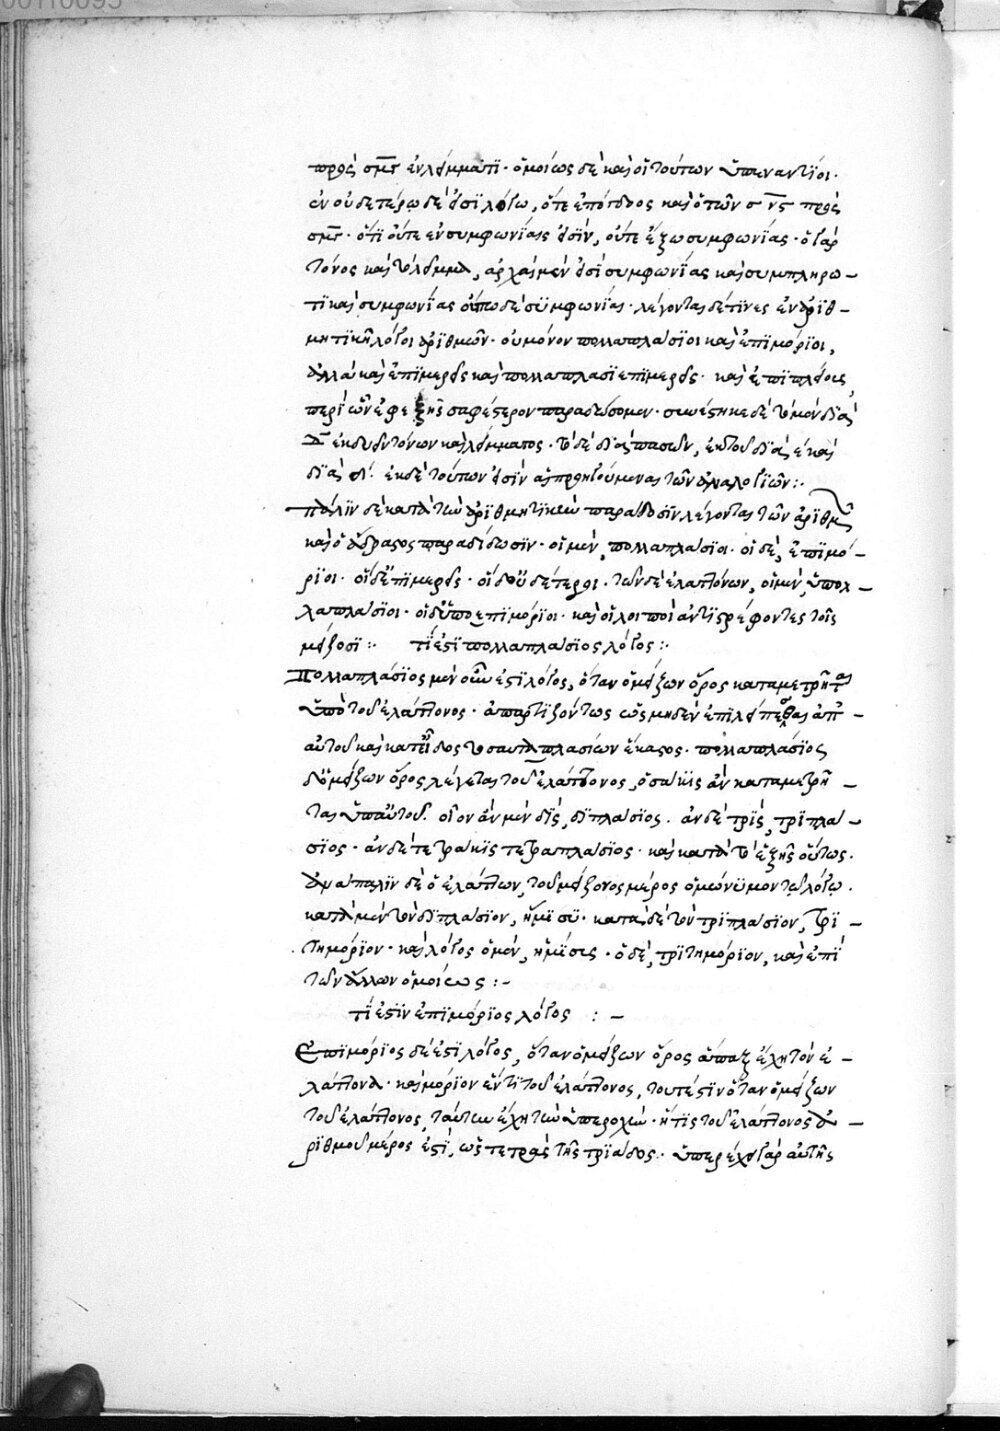 πρὸς σμγ ἐν λείμματι· ὁμοίως δὲ καὶ οἱ τούτων ὑπεναντίοι·
ἐν οὐδετέρῳ δέ εἰσι λόγῳ, ὅ τε ἐπόγδοος καὶ ὁ τῶν σνς πρὸς
σμγ· ὅτι οὔτε ἐν συμφωνίαις εἰσὶν, οὔτε ἔξω συμφωνίας· ὁ γὰρ
τόνος καὶ τὸ λεῖμμα, ἀρχαὶ μέν εἰσι συμφωνίας καὶ συμπληρω-
τικαὶ συμφωνίας οὔπω δὲ σύμφωνίαι· λέγονται δέ τινες ἐν ἀριθ-
μητικῇ λόγοι ἀριθμῶν· οὐ μόνον πολλαπλάσιοι καὶ ἐπιμόριοι,
ἀλλὰ καὶ ἐπιμερεῖς καὶ πολλαπλασιεπιμερεῖς· καὶ ἔτι πλείους
περὶ ὧν ἐφεξῆς σαφέστερον παραδώσομεν· συνέστηκε δὲ τὸ μὲν διὰ
δ̄ ἐκ δυεῖν τόνων καὶ λείμματος· τὸ δὲ διαπασῶν, ἐκ τοῦ διὰ ε καὶ
διὰ δ· ἐκ δὲ τούτων εἰσὶν αἱ προηγούμεναι τῶν ἀναλογιῶν:·
πάλιν δὲ κατὰ τὴν ἀριθμητικὴν παράδοσιν λέγονται τῶν ἀριθμῶν
καὶ ὁ ἄδραστος παραδίδωσιν· οἱ μὲν, πολλαπλάσιοι· οἱ δὲ, ἐπιμό-
ριοι· οἱ δ' ἐπιμερεῖς· οἱ δ' οὐδέτεροι· τῶν δὲ ἐλαττόνων, οἱ μὲν, ὑπολ-
λαπλάσιοι· οἱ δ' ὑποεπιμόριοι· καὶ οἱ λοιποὶ ἀντιστρέφοντες τοῖς
μείζοσι:· τί ἐστι πολλαπλάσιος λόγος:·
Πολλαπλάσιος μὲν οὖν ἐστι λόγος, ὅταν ὁ μείζων ὅρος καταμετρῆται
ὑπὸ τοῦ ἐλάττονος· ἀπαρτιζόντως ὡς μηδὲν ἐπιλείπεσθαι ἀπ-
αὐτοῦ καὶ κατ' εἶδος τοσαυταπλασίων ἕκαστος· πολλαπλάσιος
δ' ὁ μείζων ὅρος λέγεται τοῦ ἐλάττονος, ὁσάκις ἂν καταμετρῆ-
ται ὑπ' αὐτοῦ. οἷον ἂν μὲν δίς, διπλάσιος· ἂν δὲ τρὶς, τριπλά-
σιος· ἂν δὲ τετράκις τετραπλάσιος· καὶ κατὰ τὸ ἑξῆς οὕτως.
ἀνάπαλιν δὲ ὁ ἐλάττων, τοῦ μείζονος μέρος ὁμώνυμον τῷ λόγῳ.
κατὰ μὲν τὸν διπλάσιον, ἥμισυ· κατὰ δὲ τὸν τριπλάσιον, τρι-
τημόριον· καὶ λόγος ὁ μὲν, ἥμισυς· ὁ δὲ, τριτημόριον, καὶ ἐπὶ
τῶν ἄλλων ὁμοίως:-
τί ἐστιν ἐπιμόριος λόγος :-
Ἐπιμόριος δέ ἐστι λόγος, ὅταν ὁ μείζων ὅρος ἅπαξ ἔχῃ τὸν ἐ-
λάττονα· καὶ μόριον ἕν τι τοῦ ἐλάττονος, τουτέστιν ὅταν ὁ μείζων
τοῦ ἐλάττονος, ταύτην ἔχῃ τὴν ὑπεροχὴν· ἥτις τοῦ ἐλάττονος ἀ-
ριθμοῦ μέρος ἐστί, ὡς τετρὰς τῆς τριάδος· ὑπερέχει γὰρ αὐτῆς